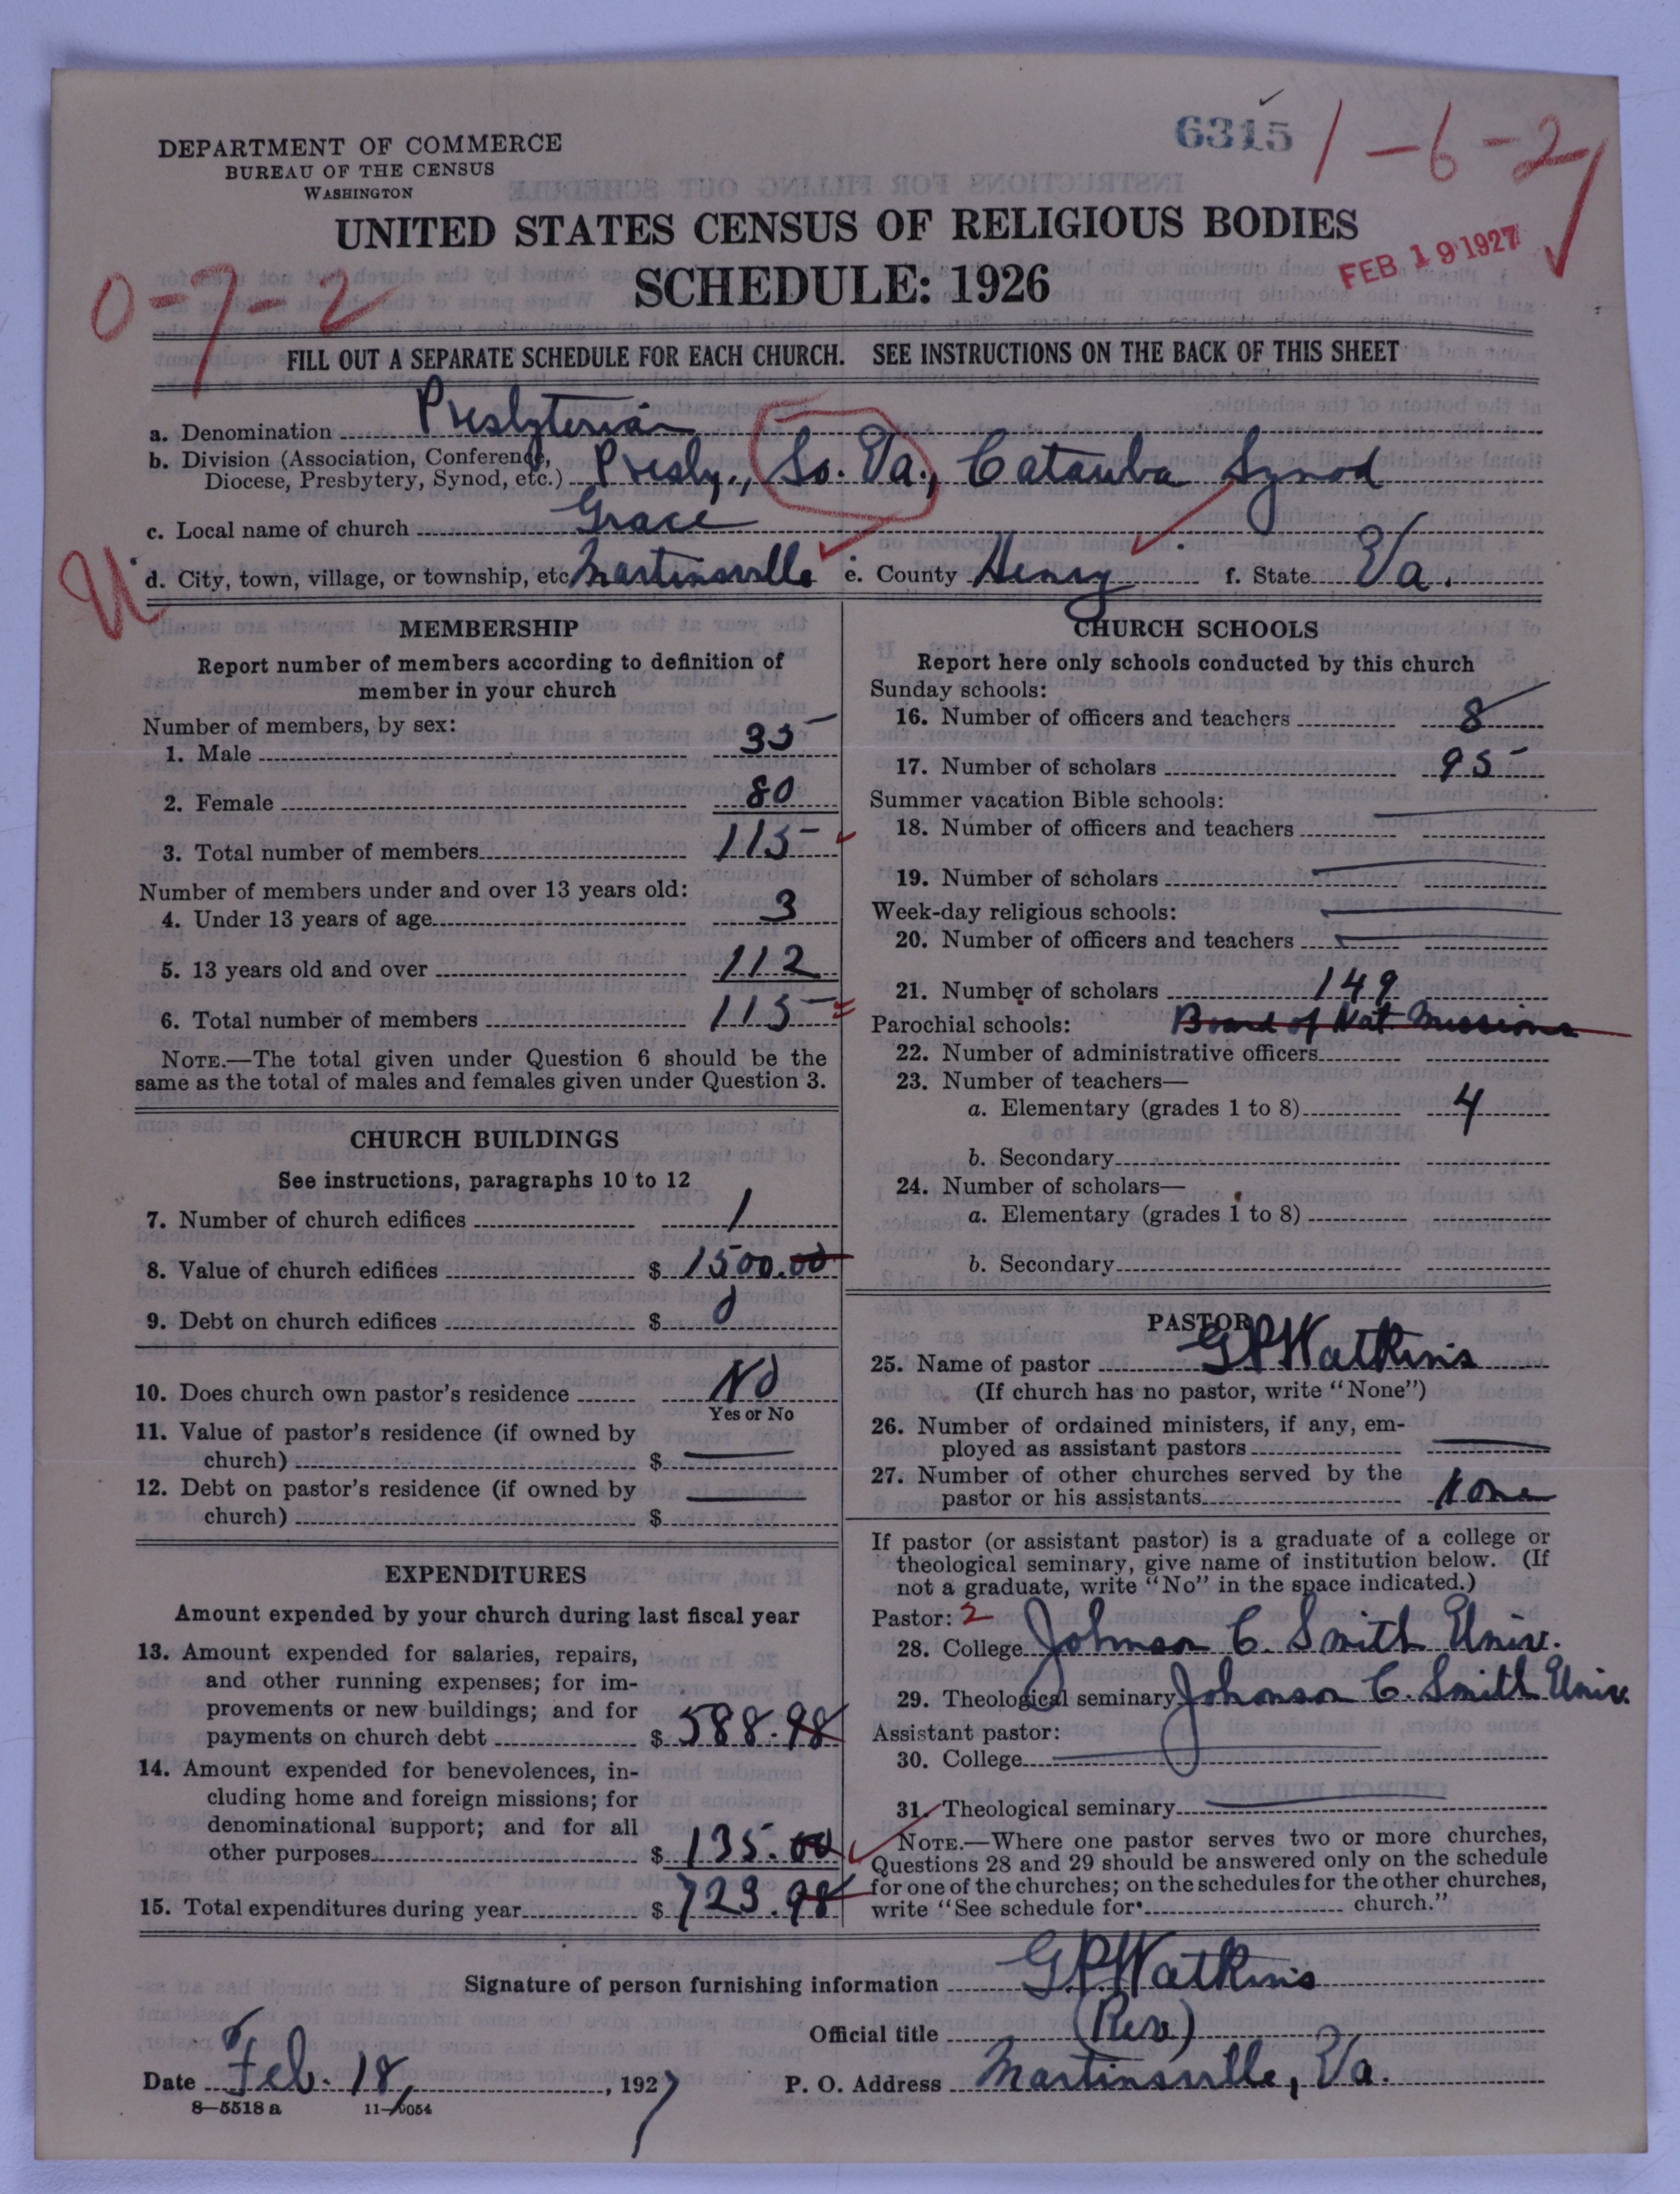 6315
1-6-2
DEPARTMENT OF COMMERCE
BUREAU OF THE CENSUS
WASHINGTON
UNITED STATES CENSUS OF RELIGIOUS BODIES
SCHEDULE: 1926
FEB 19 1927
0-7-2
FILL OUT A SEPARATE SCHEDULE FOR EACH CHURCH. SEE INSTRUCTIONS ON THE BACK OF THIS SHEET
a. Denomination Presbyterian
b. Division (Association, Conference, Diocese, Presbytery, Synod, etc.) Presby., So. Va., Catawba Synod
c. Local name of church Grace
U
d. City, town, village, or township, etc. Martinsville e. County Henry f. State Va.
MEMBERSHIP
Report number of members according to definition of
member in your church
Number of members, by sex:
1. Male 35
2. Female 80
3. Total number of members 115
Number of members under and over 13 years old:
4. Under 13 years of age 3
5. 13 years old and over 112
6. Total number of members 115
NOTE.—The total given under Question 6 should be the
same as the total of males and females given under Question 3.
CHURCH BUILDINGS
See instructions, paragraphs 10 to 12
7. Number of church edifices 1
8. Value of church edifices $ 1500.00
9. Debt on church edifices $ 0
10. Does church own pastor's residence No
Yes or No
11. Value of pastor's residence (if owned by
church) $
12. Debt on pastor's residence (if owned by
church) $
EXPENDITURES
Amount expended by your church during last fiscal year
13. Amount expended for salaries, repairs,
and other running expenses; for im-
provements or new buildings; and for
payments on church debt $ 588.98
14. Amount expended for benevolences, in-
cluding home and foreign missions; for
denominational support; and for all
other purposes $ 135.00
15. Total expenditures during year $ 723.98
CHURCH SCHOOLS
Report here only schools conducted by this church
Sunday schools:
16. Number of officers and teachers 8
17. Number of scholars 95
Summer vacation Bible schools:
18. Number of officers and teachers
19. Number of scholars
Week-day religious schools:
20. Number of officers and teachers
21. Number of scholars 149
Parochial schools: Board of Nat. Missions
22. Number of administrative officers
23. Number of teachers—
a. Elementary (grades 1 to 8) 4
b. Secondary
24. Number of scholars—
a. Elementary (grades 1 to 8)
b. Secondary
PASTOR
25. Name of pastor G P Watkins
(If church has no pastor, write "None")
26. Number of ordained ministers, if any, em-
ployed as assistant pastors
27. Number of other churches served by the
pastor or his assistants None
If pastor (or assistant pastor) is a graduate of a college or
theological seminary, give name of institution below. (If
not a graduate, write "No" in the space indicated.)
Pastor: 2
28. College Johnson C. Smith Univ.
29. Theological seminary Johnson C. Smith Univ.
Assistant pastor:
30. College
31. Theological seminary
NOTE.—Where one pastor serves two or more churches,
Questions 28 and 29 should be answered only on the schedule
for one of the churches; on the schedules for the other churches,
write "See schedule for church."
Signature of person furnishing information G P Watkins
Official title (Rev)
Date Feb. 18, 1927 P. O. Address Martinsville, Va.
8—5518 a 11-9054